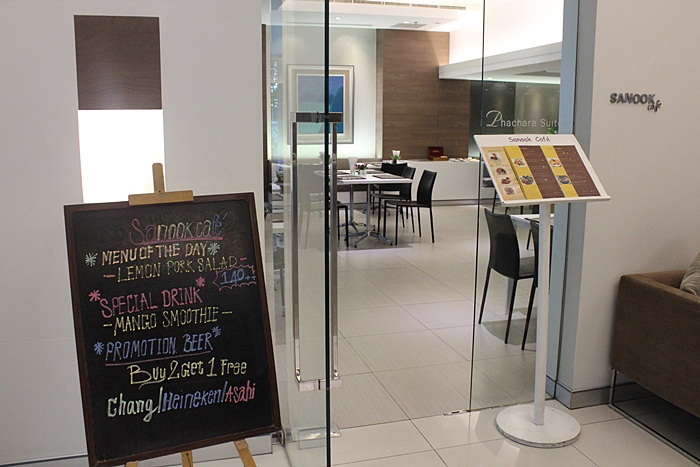 Sanook café
*MENU OF THE DAY*
- LEMON PORK SALAD -
140.-
*SPECIAL DRINK*
- MANGO SMOOTHIE -
*PROMOTION BEER*
Buy 2 Get 1 Free
Chang/Heineken/Asahi
Phachara Suit
Sanook Café
SANOOK
cafe